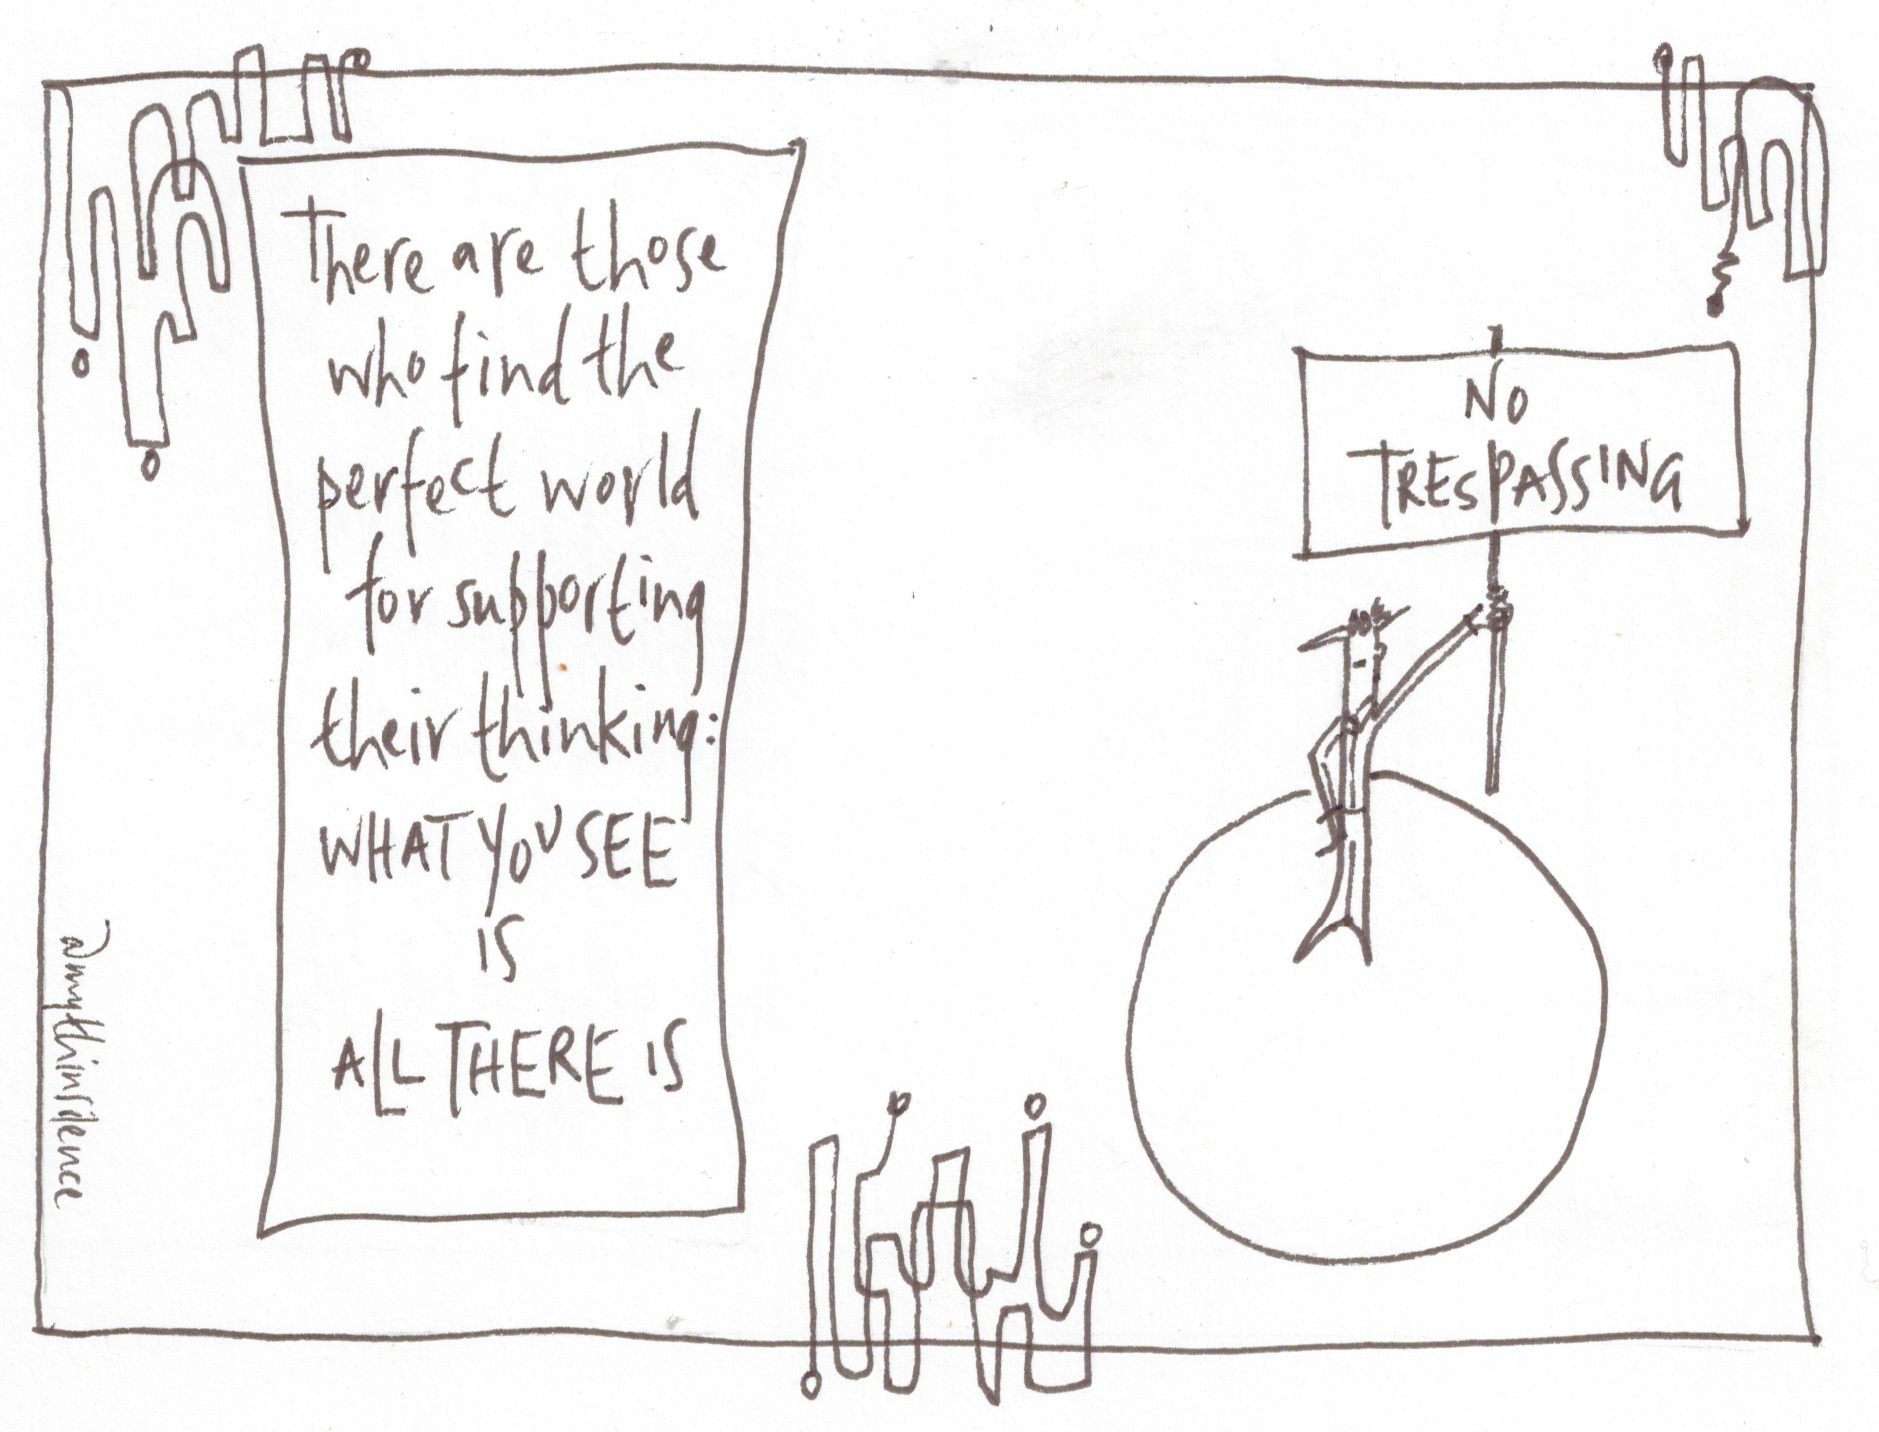 There are those
who find the
perfect world
for supporting
their thinking:
WHAT YOU SEE
IS
ALL THERE IS
NO
TRESPASSING
@mythinsidence